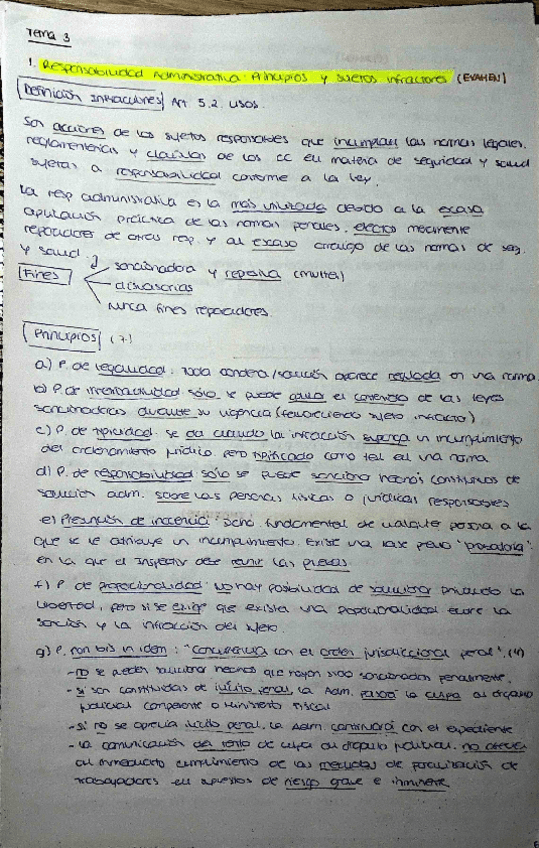 Tema 3
1. Responsabilidad Administrativa: Principios y sujetos infractores (EXAMEN)
Definición Infracciones Art 5.2. LISOS.
Son acciones de los sujetos responsables que incumplan las normas legales,
reglamentarias y clausulas de los CC en materia de seguridad y salud
sujetas a responsabilidad conforme a la ley.
La resp administrativa es la más utilizada debido a la escasa
aplicación práctica de las normas penales, efectos meramente
reparadores de otras resp. y al escaso arraigo de las normas de seg.
y salud.
Fines
sancionadora y represiva (multa)
disuasorias
nunca fines reparadores.
Principios (7)
a) P. de legalidad: toda condena/sanción aparece regulada en una norma.
b) P. de irretroactividad sólo se puede aplicar el contenido de las leyes
sancionadoras durante su vigencia (favoreciendo sujeto infractor)
c) P. de tipicidad. se da cuando la infracción suponga un incumplimiento
del ordenamiento jurídico pero tipificado como tal en una norma
d) P. de responsabilidad sólo se puede sancionar hechos constitutivos de
sanción adm. sobre las personas físicas o jurídicas responsables
e) Presunción de inocencia: dcho. fundamental de cualquier persona a la
que se le atribuye un incumplimiento. Existe una fase previa "probatoria"
en la que el Inspector debe reunir las pruebas.
f) P. de proporcionalidad: No hay posibilidad de sancionar privando la
libertad, pero si se exige que exista una proporcionalidad entre la
sanción y la infracción del sujeto.
g) P. non bis in idem: "Concurrencia con el orden jurisdiccional penal".
- no se pueden sancionar hechos que hayan sido sancionados penalmente.
- si son constitutivas de ilícito penal, la Adm. pasará la culpa al órgano
judicial competente o ministerio fiscal
- si no se aprecia ilícito penal, la Adm continuará con el expediente
- la comunicación del tanto de culpa al órgano judicial, no afecta
al inmediato cumplimiento de las medidas de paralización de
trabajadores en supuestos de riesgo grave e inminente